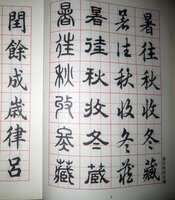 暑往秋收冬藏
暑往秋收冬藏
暑往秋收冬藏
暑往秋收冬藏
閏餘成歲律呂